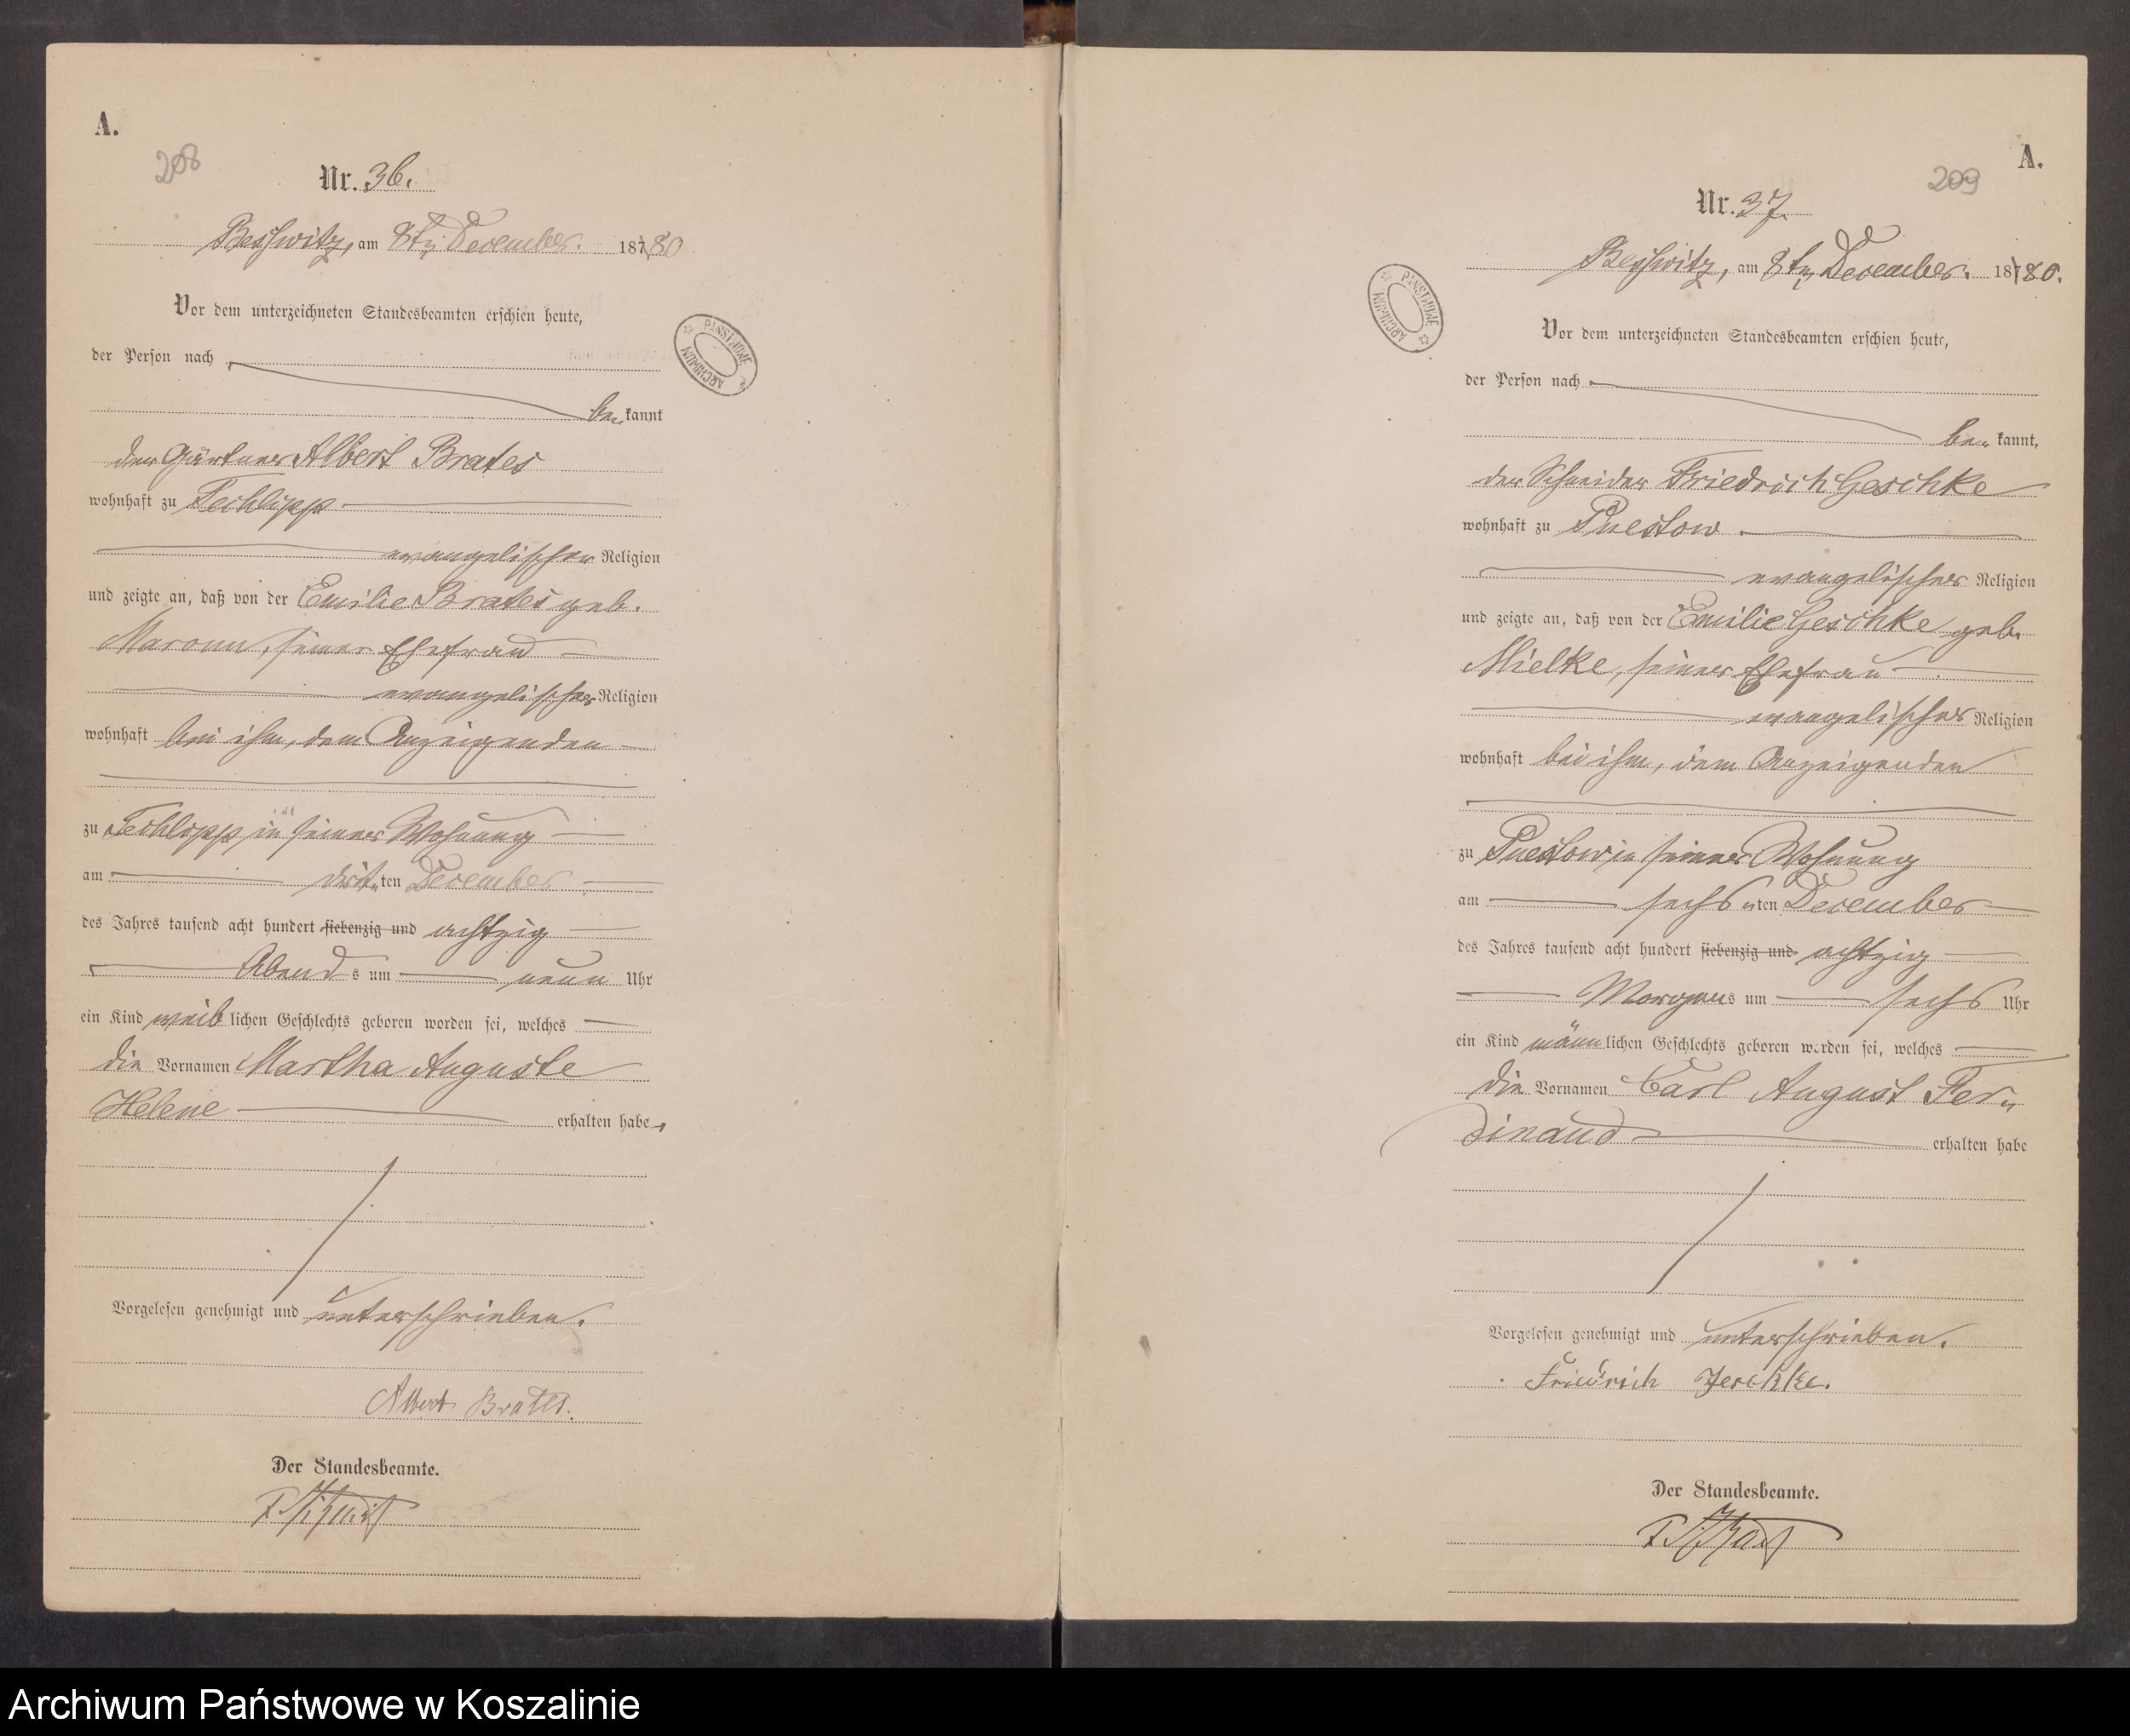 A.
208
Nr. 36.
Beßwitz, am 8ten December. 187 80
Vor dem unterzeichneten Standesbeamten erschien heute,
der Person nach
be kannt
der Gärtner Albert Brates
wohnhaft zu Techlipp
evangelischer Religion
und zeigte an, daß von der Emilie Brates geb.
seiner Ehefrau
evangelischer Religion
wohnhaft bei ihm, dem Anzeigenden
zu Techlipp in seiner Wohnung
am dritten December
des Jahres tausend acht hundert siebenzig und achtzig
Abend s um neun Uhr
ein Kind weib lichen Geschlechts geboren worden sei, welches
die Vornamen Martha Auguste
Helene erhalten habe
Vorgelesen genehmigt und unterschrieben.
Albert Brates.
Der Standesbeamte.
ARCHIWUM PAŃSTWOWE
A.
209
Nr. 37.
Beßwitz, am 8ten December. 187 80.
Vor dem unterzeichneten Standesbeamten erschien heute,
der Person nach
be kannt,
der Schneider Friedrich Geschke
wohnhaft zu Puestow
evangelischer Religion
und zeigte an, daß von der Emilie Geschke geb.
Mielke, seiner Ehefrau
evangelischer Religion
wohnhaft bei ihm, dem Anzeigenden
zu Puestow in seiner Wohnung
am sechsten December
des Jahres tausend acht hundert siebenzig und achtzig
Morgens um sechs Uhr
ein Kind männ lichen Geschlechts geboren worden sei, welches
die Vornamen Carl August Fer-
dinand erhalten habe
Vorgelesen genehmigt und unterschrieben.
Friedrich Jeschke.
Der Standesbeamte.
ARCHIWUM PAŃSTWOWE
Archiwum Państwowe w Koszalinie